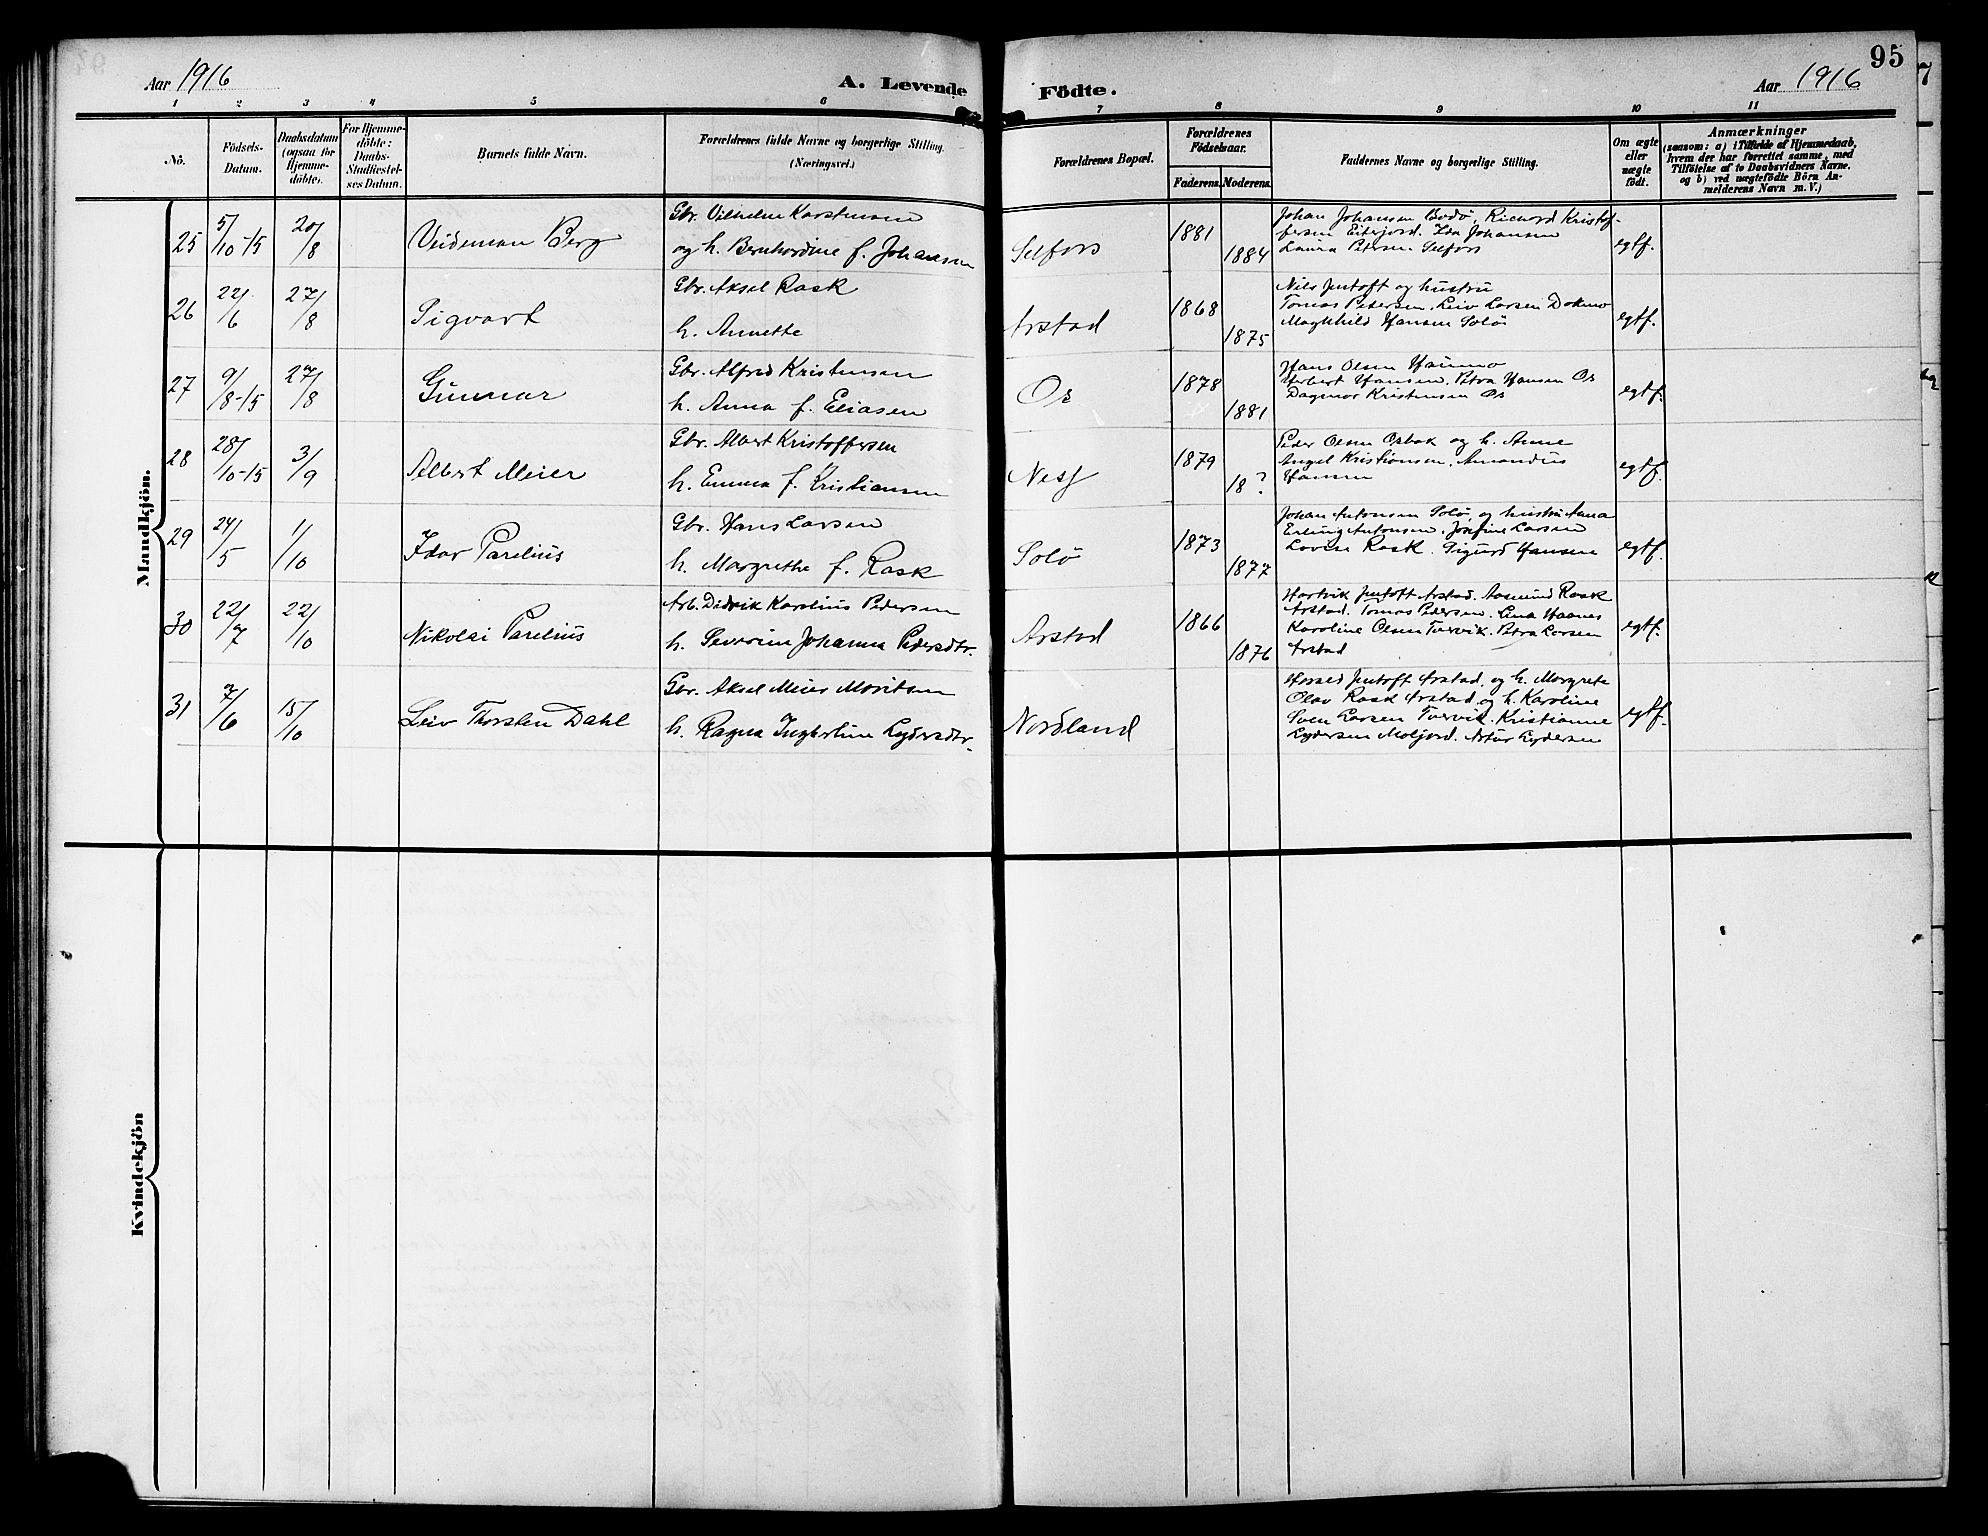 Aar 1916
A. Levende
Födte.
Aar 1916
95
1 2 3 4 5 6 7 8 9 10 11
Nö.
Födsels-
Datum.
Daabsdatum
(ogsaa for
Hjemme-
döbte).
For Hjemme-
döbte:
Daabs-
Stadfæstel-
ses Datum.
Barnets fulde Navn.
Forældrenes fulde Navne og borgerlige Stilling.
(Næringsvei.)
Forældrenes Bopæl.
Forældrenes
Födselsaar.
Faderens. Moderens.
Faddernes Navne og borgerlige Stilling.
Om ægte
eller
uægte
födt.
Anmærkninger
(saasom: a) i Tilfælde af Hjemmedaab,
hvem der har forrettet samme, med
Tilföielse af to Daabsvidners Navne.
og b) ved uægtefödte Börn An-
melderens Navn m. V.)
Mandkjön.
25 5/10-15 20/8 Videman Berg
Gbr. Vilhelm Karstensen
og h. Bernhardine f. Johansen
Selfors 1881 1884
Johan Johansen Bodø, Richard Kristof-
fersen Eiterjord. Ida Johansen
Laura Petersen Selfors
egtf.
26 22/6 27/8 Sigvart
Gbr. Aksel Rask
h. Annette
Arstad 1868 1875
Nils Jentoft og hustru
Tomas Pedersen, Leiv Larsen Dokmo
Maghhild Hansen Solø
egtf.
27 9/8-15 27/8 Gunnar
Gbr. Alfred Kristensen
h. Anna f. Eliasen
Os 1878 1881
Hans Olsen
Herbert Hansen, Petra Hansen Os
Dagmar Kristensen Os
egtf.
28 28/10-15 3/9 Albert Meier
Gbr. Albert Kristoffersen
h. Emma f. Kristiansen
Nesj 1879 18?
Peder Olsen Osbak og h. Anne
Angel Kristiansen, Amandus
Hansen
egtf.
29 24/5 1/10 Idar Parelius
Gbr. Hans Larsen
h. Margrethe f. Rask
Solø 1873 1877
Johan Antonsen Solø, og hustru Anna
Erling Antonsen, Josefine Larsen
Lovise Rask. Sigurd Hansen
egtf.
30 22/7 22/10 Nikolai Parelius
Arb. Didrik Karelius Pedersen
h. Severine Johanna Pedersdtr.
Arstad 1866 1876
Hartvik Jentoft Arstad. Aasmund Rask
Arstad. Tomas Pedersen. Lina Haanes
Karoline Olsen Tvervik. Petra Larsen
Arstad
egtf.
31 7/6 15/10 Leiv Thorsten Dahl
Gbr. Aksel Meier Moritsen
h. Ragna Ingerline Lydersdtr.
Nordland
Harald Jentoft Arstad, og h. Margrete
Olav Rask Arstad, og h. Karoline
Sven Larsen Tvervik. Kristianne
Lydersen Moljord. Artur Lydersen
egtf.
Kvindekjön